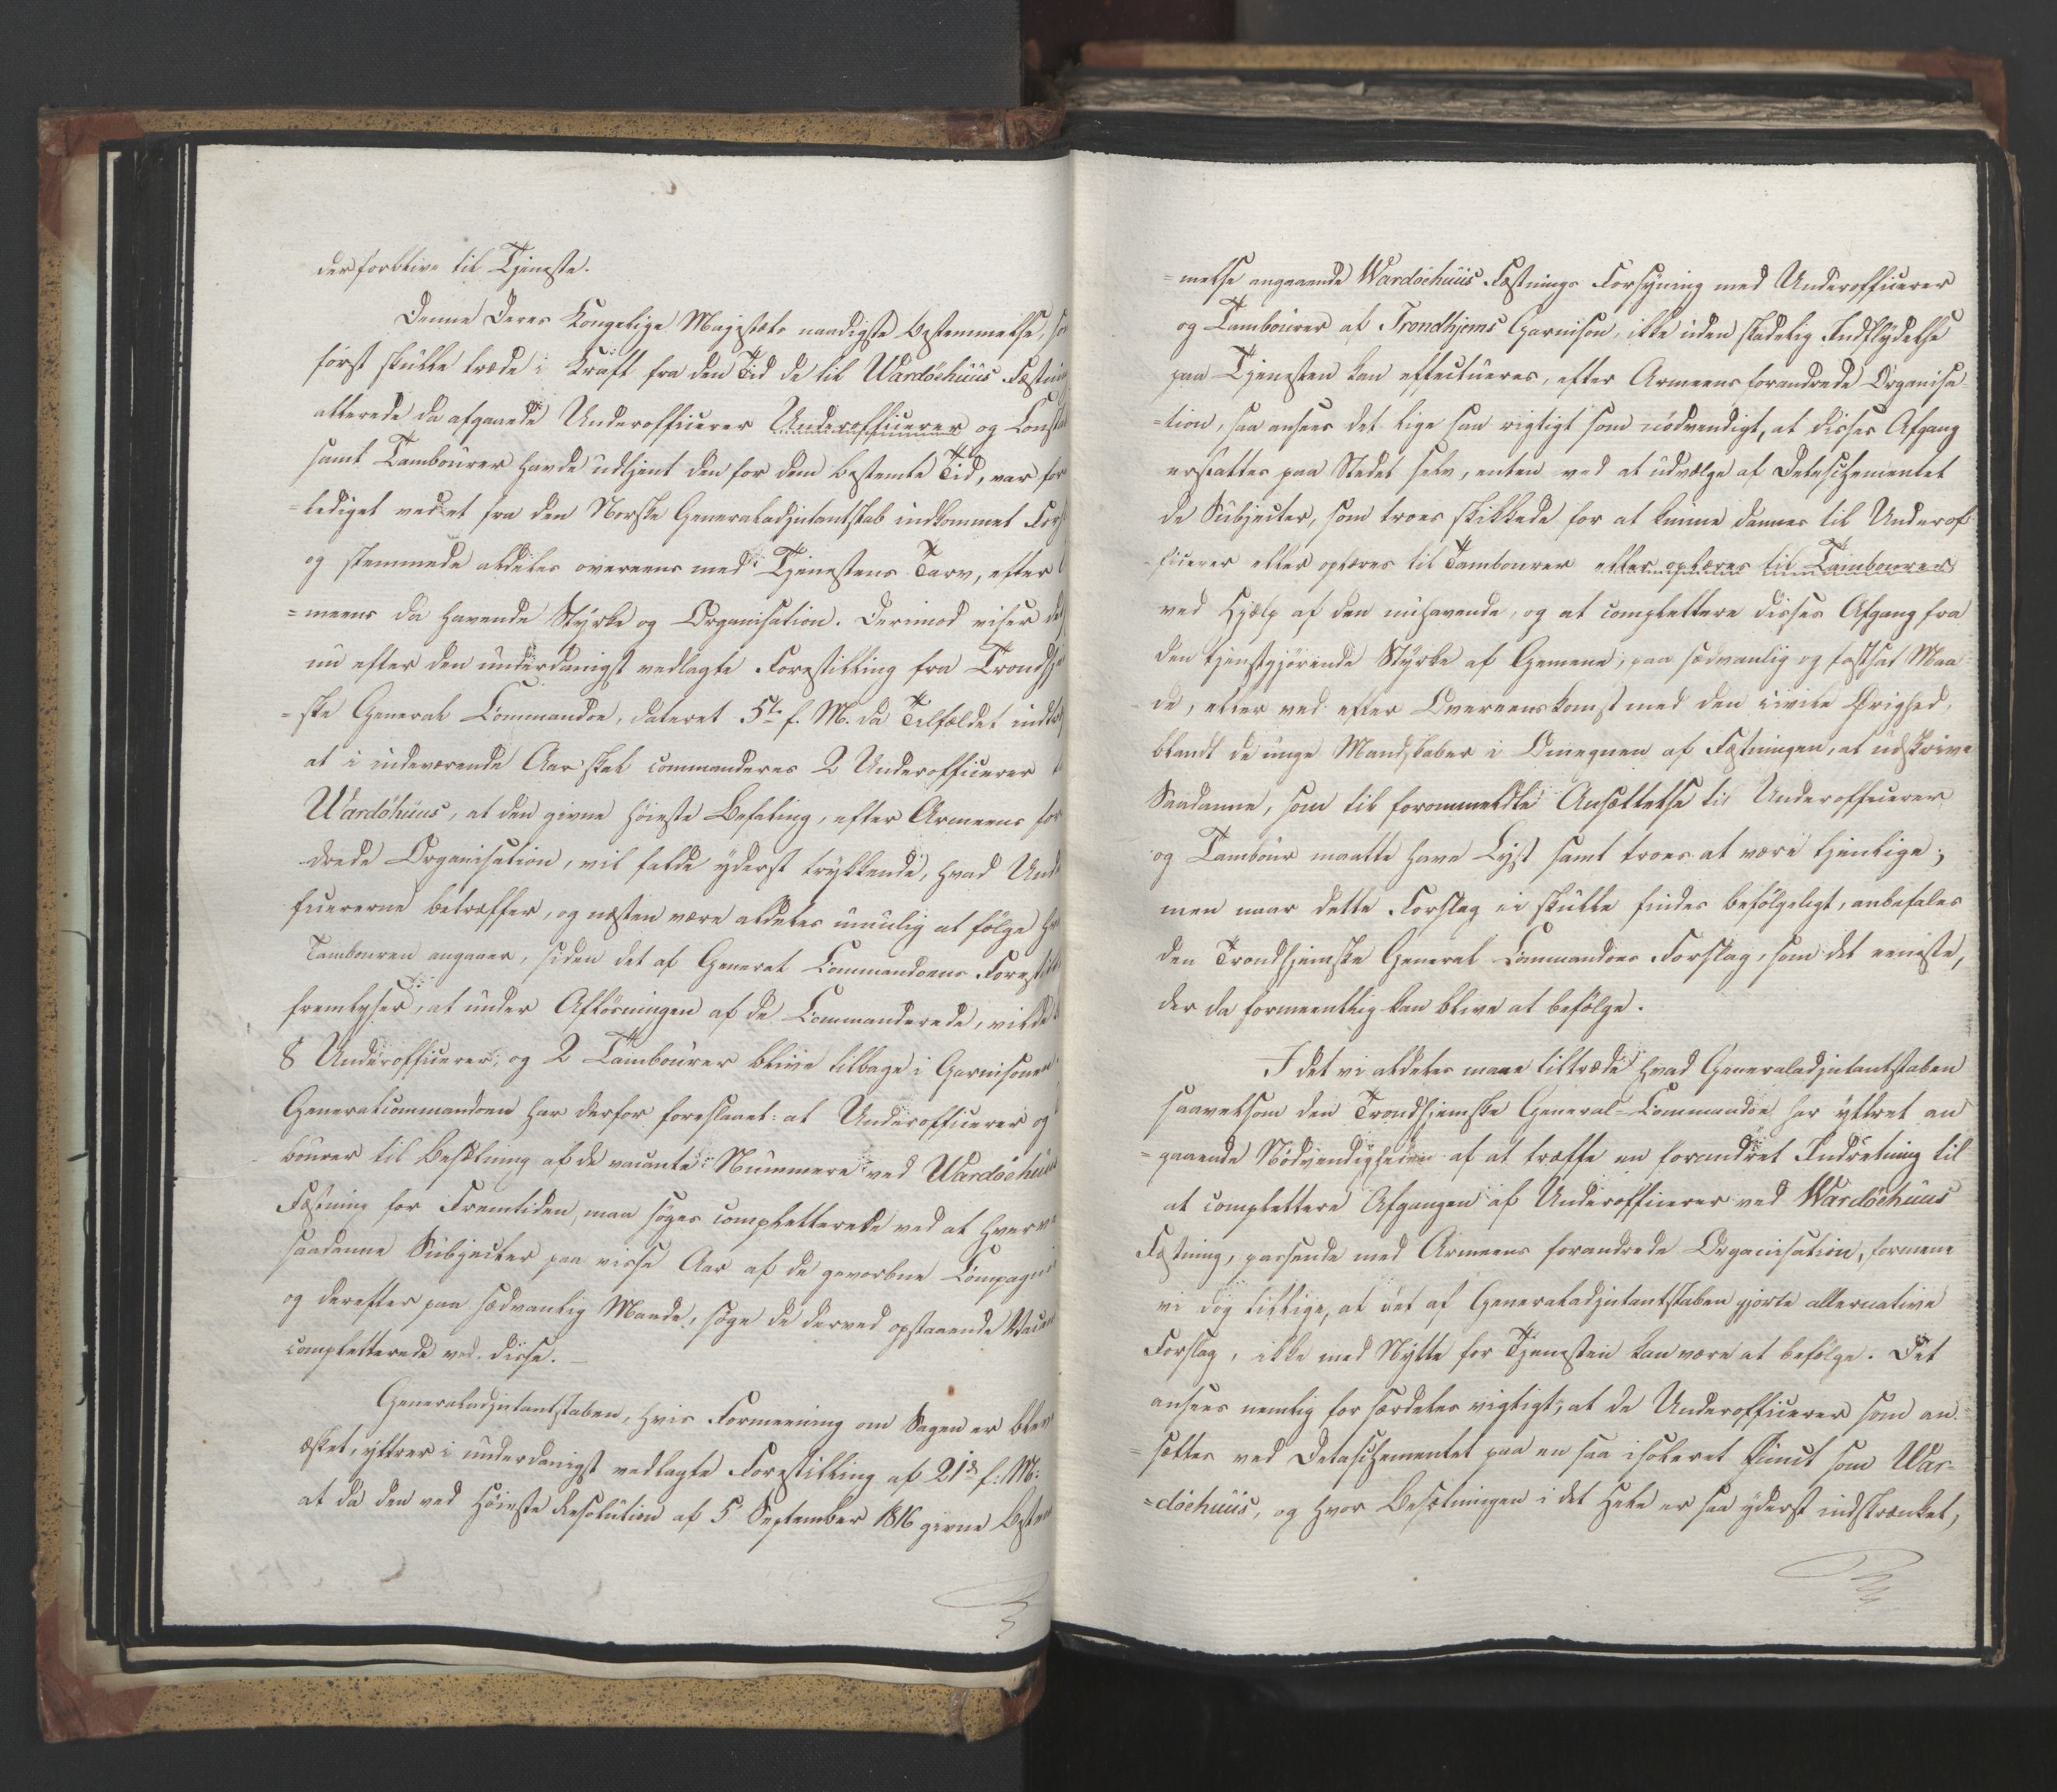 der forblive til Tjeneste.
Denne Deres Kongelige Majestæts naadigste Bestemmelse, so
først skulle træde i Kraft fra den Tid de til Wardöehuus Fæstnin
allerede da afgaaede Underofficerer Underofficerer og Const
samt Tambourer havde udtjent den for dem bestemte Tid, var for
=lediget ved et fra den Norske Generaladjutantstab indkommet Fors
og stemmede aldeles overeens med Tjenestens Tarv, efter
=meens da havende Styrke og Organisation. Derimod viser det
nu efter den underdanigst vedlagte Forestilling fra Trondhje
=ske General Commandoe, dateret 5te f. M. da Tilfældet indtr
at i indeværende Aar skal commanderes 2 Underofficerer t
Wardöhuus, at den givne höieste Befaling, efter Armeens for
drede Organisation, vil falde yderst trykkende, hvad Unde
ficererne betræffer, og næsten være aldeles umulig at følge hv
Tambouren angaaer, siden det af General Commandoens Forestill
fremlyser, at under Aflösningen af de Commanderede, vilde
8 Underofficerer; og 2 Tambourer blive tilbage i Garnisonen
Generalcommandoen har derfor foreslaaet: at Underofficerer og
bourer til Besætning af de vacante Nummere ved Wardöehuus
Fæstning for Fremtiden, maa söges completterede ved at hverve
saadanne Subjecter paa visse Aar af de gevorbne Compagni
og derefter paa sædvanlig Maade, söge de derved opstaaende Vacan
completterede ved disse. —
Generaladjutantstaben, hvis Formeening om Sagen er blev
æsket, yttrer i underdanigst vedlagte Forestilling af 21de f: M:
at da den ved Höieste Resolution af 5 September 1816 givne Bestem
=melse angaaende Wardöehuus Fæstnings Forsyning med Underofficerer
og Tambourer af Trondhjems Garnison, ikke uden skadelig Indflydelse
paa Tjenesten kan effectueres, efter Armeens forandrede Organisa=
=tion, saa ansees det lige saa rigtigt som nödvendigt, at disses Afgang
erstattes paa Stedet selv, enten ved at udvælge af Detaschementet
de Subjecter, som troes skikkede for at kunne dannes til Underof
ficerer eller oplæres til Tambourer eller oplæres til Tambourer
ved Hjælp af den nuhavende, og at complettere disses Afgang fra
den tjenstgjörende Styrke af Gemene, paa sædvanlig og fastsat Maa=
de, eller ved efter Overeenskomst med den civile Örighed,
blandt de unge Mandskaber i Omegnen af Fæstningen, at udskrive
Saadanne, som til forommeldte Ansættelse til Underofficerer
og Tambour maatte have Lyst samt troes at være tjenlige;
men naar dette Forslag ei skulle findes befölgeligt, anbefales
den Trondhjemske General Commandoes Forslag, som det eeneste,
der da formeentlig kan blive at befölge.
I det vi aldeles maae tiltræde hvad Generaladjutantstaben
saavelsom den Trondhjemske General-Commandoe har yttret an
=gaaende Nödvendigheden af at træffe en forandret Indretning til
at complettere Afgangen af Underofficerer ved Wardöehuus
Fæstning, passende med Armeens forandrede Organisation, formene
vi dog tillige, at det af Generaladjutantstaben gjorte alternative
Forslag, ikke med Nytte for Tjenesten kan være at befölge. Det
ansees nemlig for særdeles vigtigt, at de Underofficerer som an
=sættes ved Detaschementet paa en saa isoleret Punct som War=
=döehuus, og hvor Besætningen i det Hele er saa yderst indskrænket,